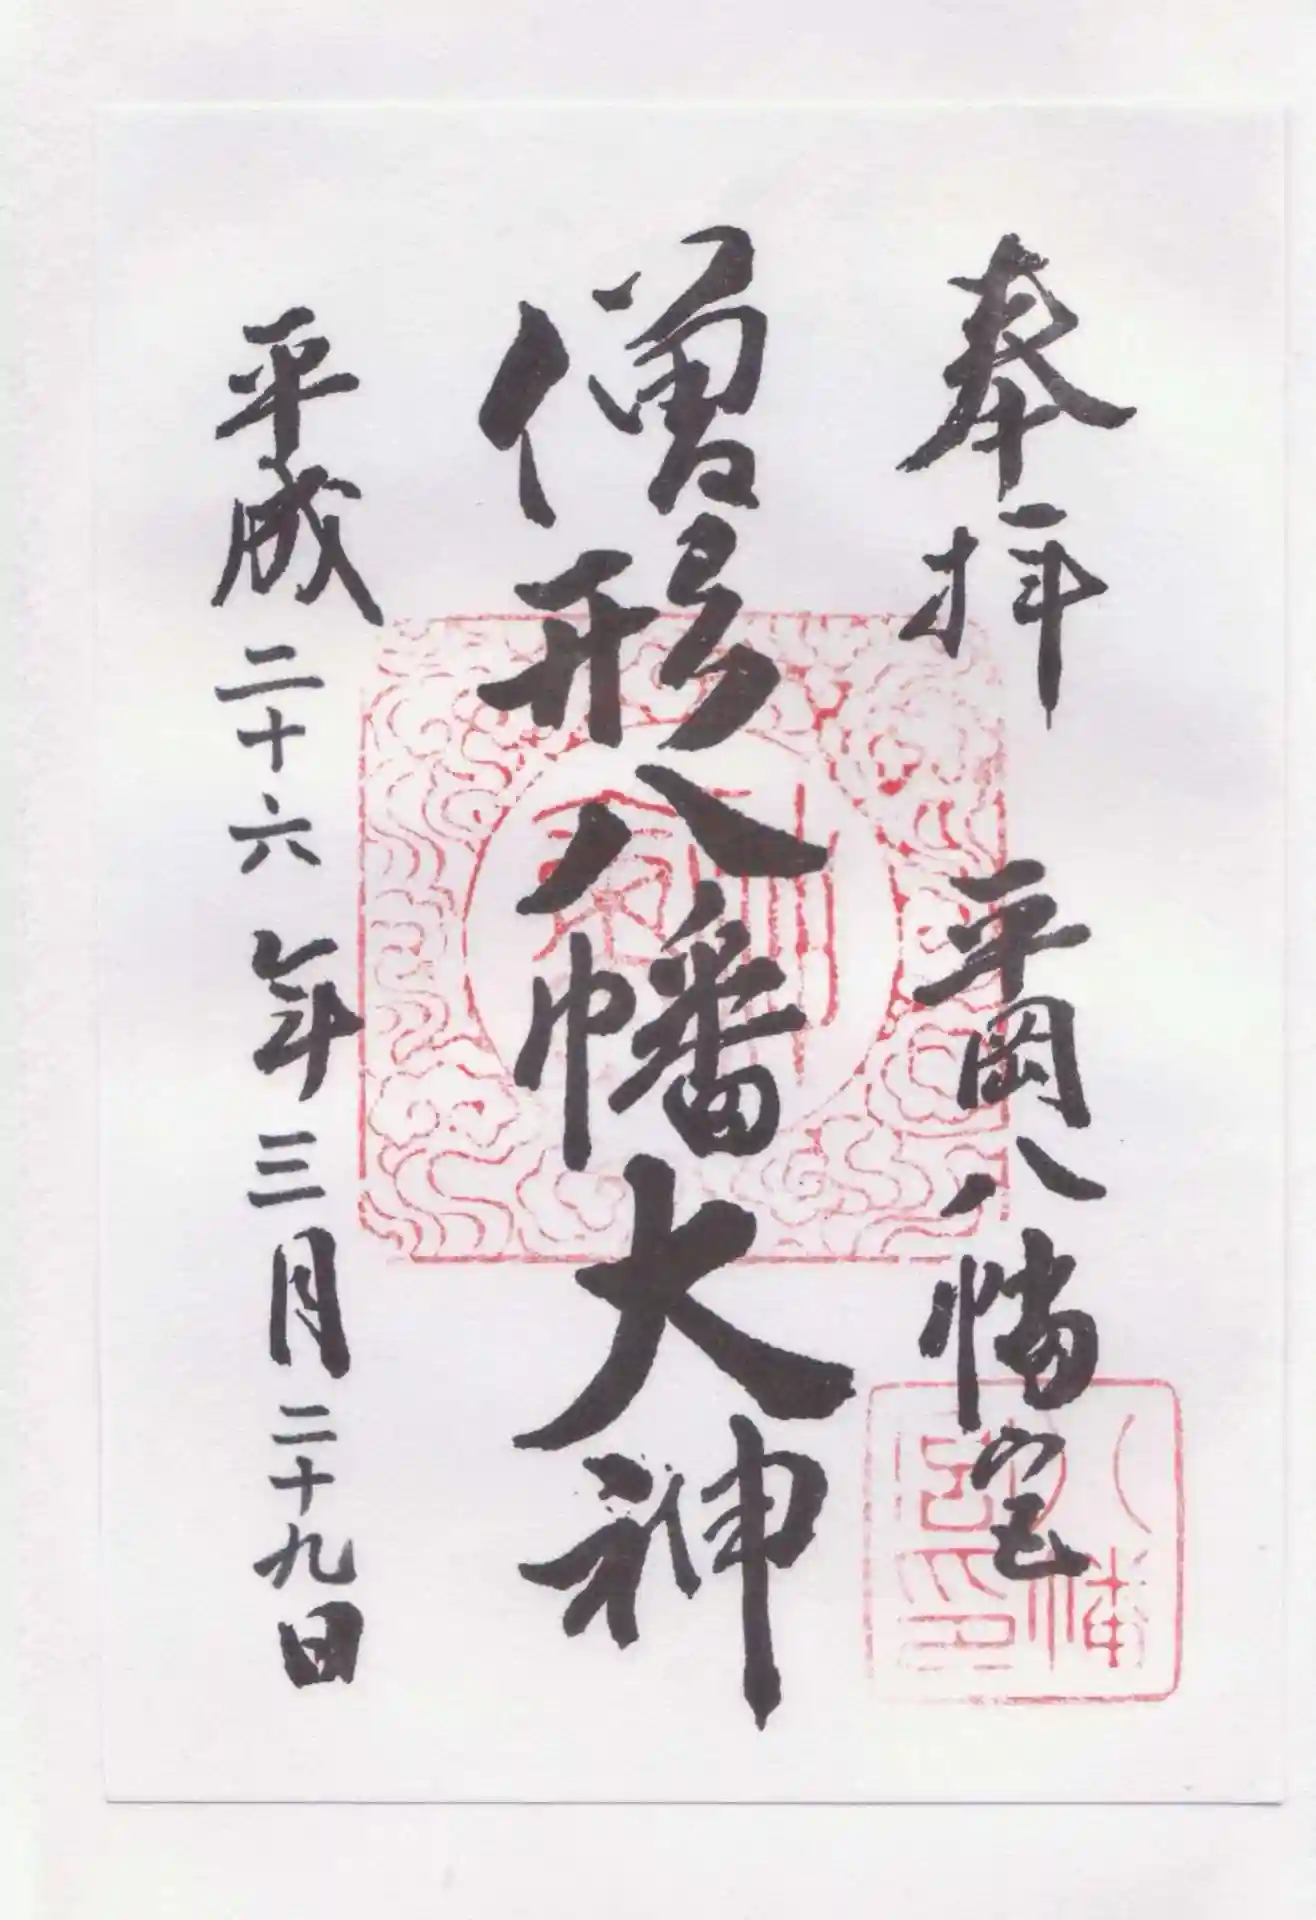 奉拝 平岡八幡宮
僧形八幡大神
平成二十六年三月二十九日
八幡宮印